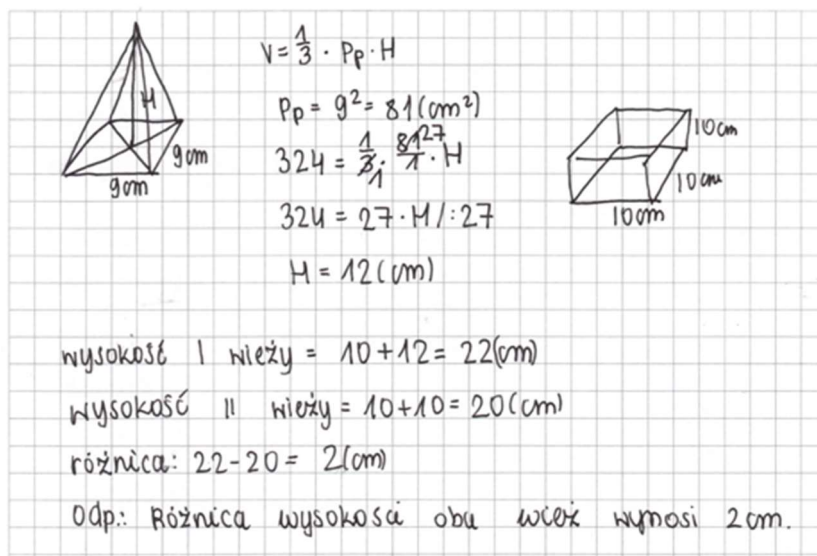 H
9cm
9cm
V = 1/3 · Pp · H
Pp = 9² = 81 (cm²)
324 = 1/3 1 · 81 27/1 · H
324 = 27 · H /: 27
H = 12 (cm)
10cm
10cm
10cm
wysokość I wieży = 10 + 12 = 22 (cm)
wysokość II wieży = 10 + 10 = 20 (cm)
różnica: 22 - 20 = 2 (cm)
Odp.: Różnica wysokości obu wież wynosi 2 cm.